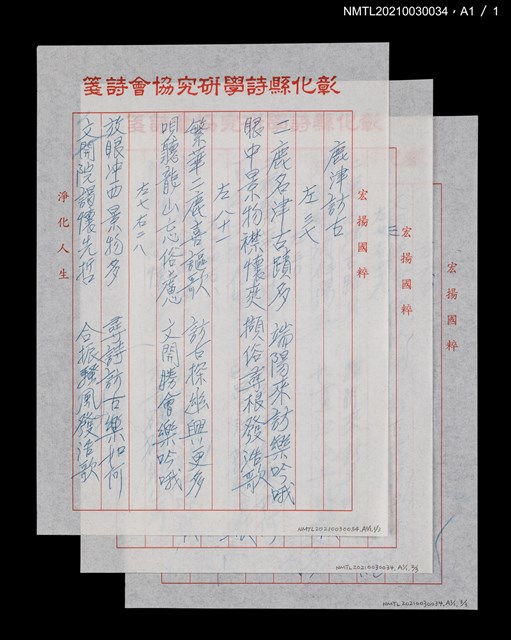 NMTL20210030034，A1 / 1
彰化縣詩學研究協會詩箋
宏揚國粹
鹿津訪古
左三七
二鹿名津古蹟多 端陽來訪樂吟哦
眼中景物襟懷爽 擷俗尋根發浩歌
左八十一
繁華二鹿喜謳歌 訪古探幽興更多
咀聽龍山忘俗慮 文開勝會樂吟哦
左七右六八
放眼沖西景物多 尋詩訪古樂如何
文開院謁懷先哲 合振騷風發浩歌
淨化人生
NMTL20210030034_A1/1_1/3
宏揚國粹
宏揚國粹
NMTL20210030034_A1/1_3/3